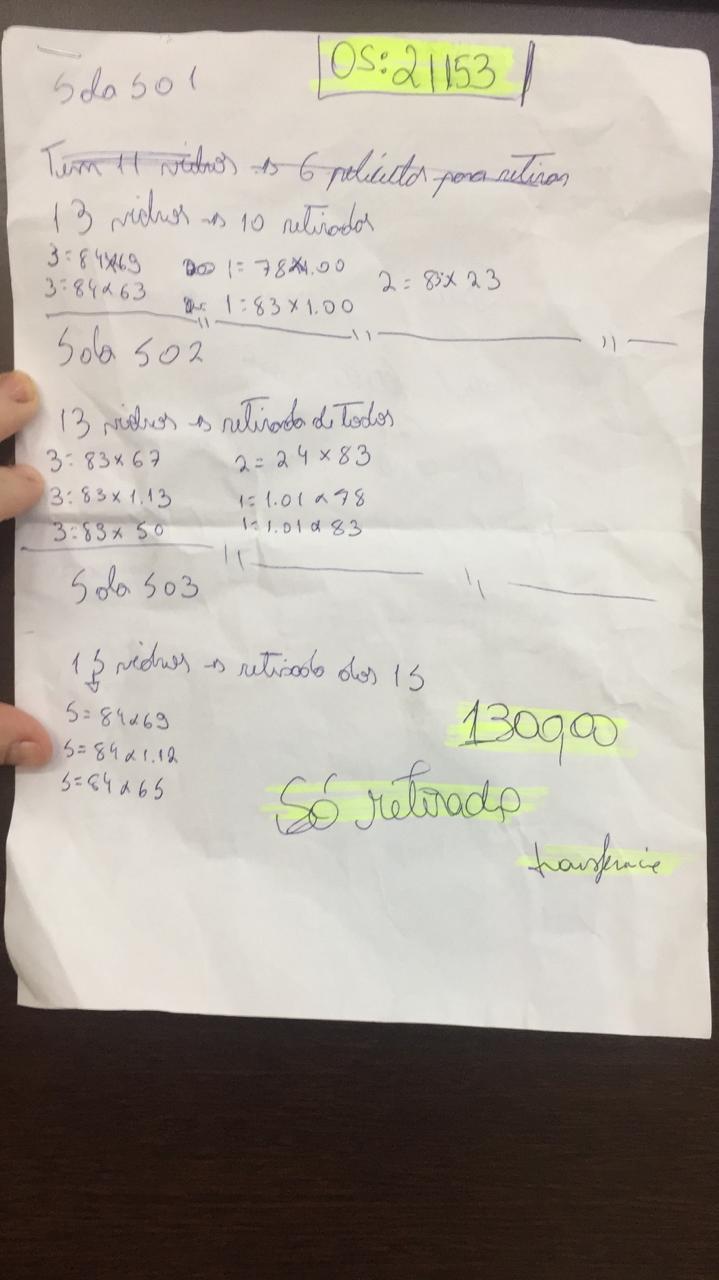 OS: 21153
Sala 501
Tem 11 vidros → 6 películas para retirar
13 vidros → 10 retirados
3 = 84x69 1 = 78x1.00 2 = 83x23
3 = 84x63 1 = 83x1.00
Sala 502
13 vidros → retirada de todos
3 = 83x67 2 = 24x83
3 = 83x1.13 1 = 1.01x78
3 = 83x50 1 = 1.01x83
Sala 503
15 vidros → retirada dos 15
5 = 84x69
5 = 84x1.12
5 = 84x65
1300,00
Só retirada
transferencia